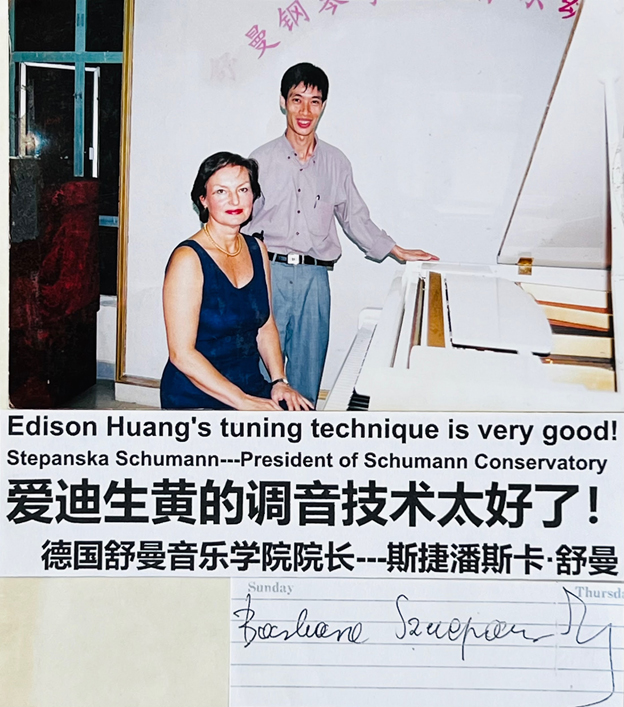 曼钢琴
Edison Huang's tuning technique is very good!
Stepanska Schumann---President of Schumann Conservatory
爱迪生黄的调音技术太好了!
德国舒曼音乐学院院长---斯捷潘斯卡·舒曼
Sunday
Thursda
Barbara